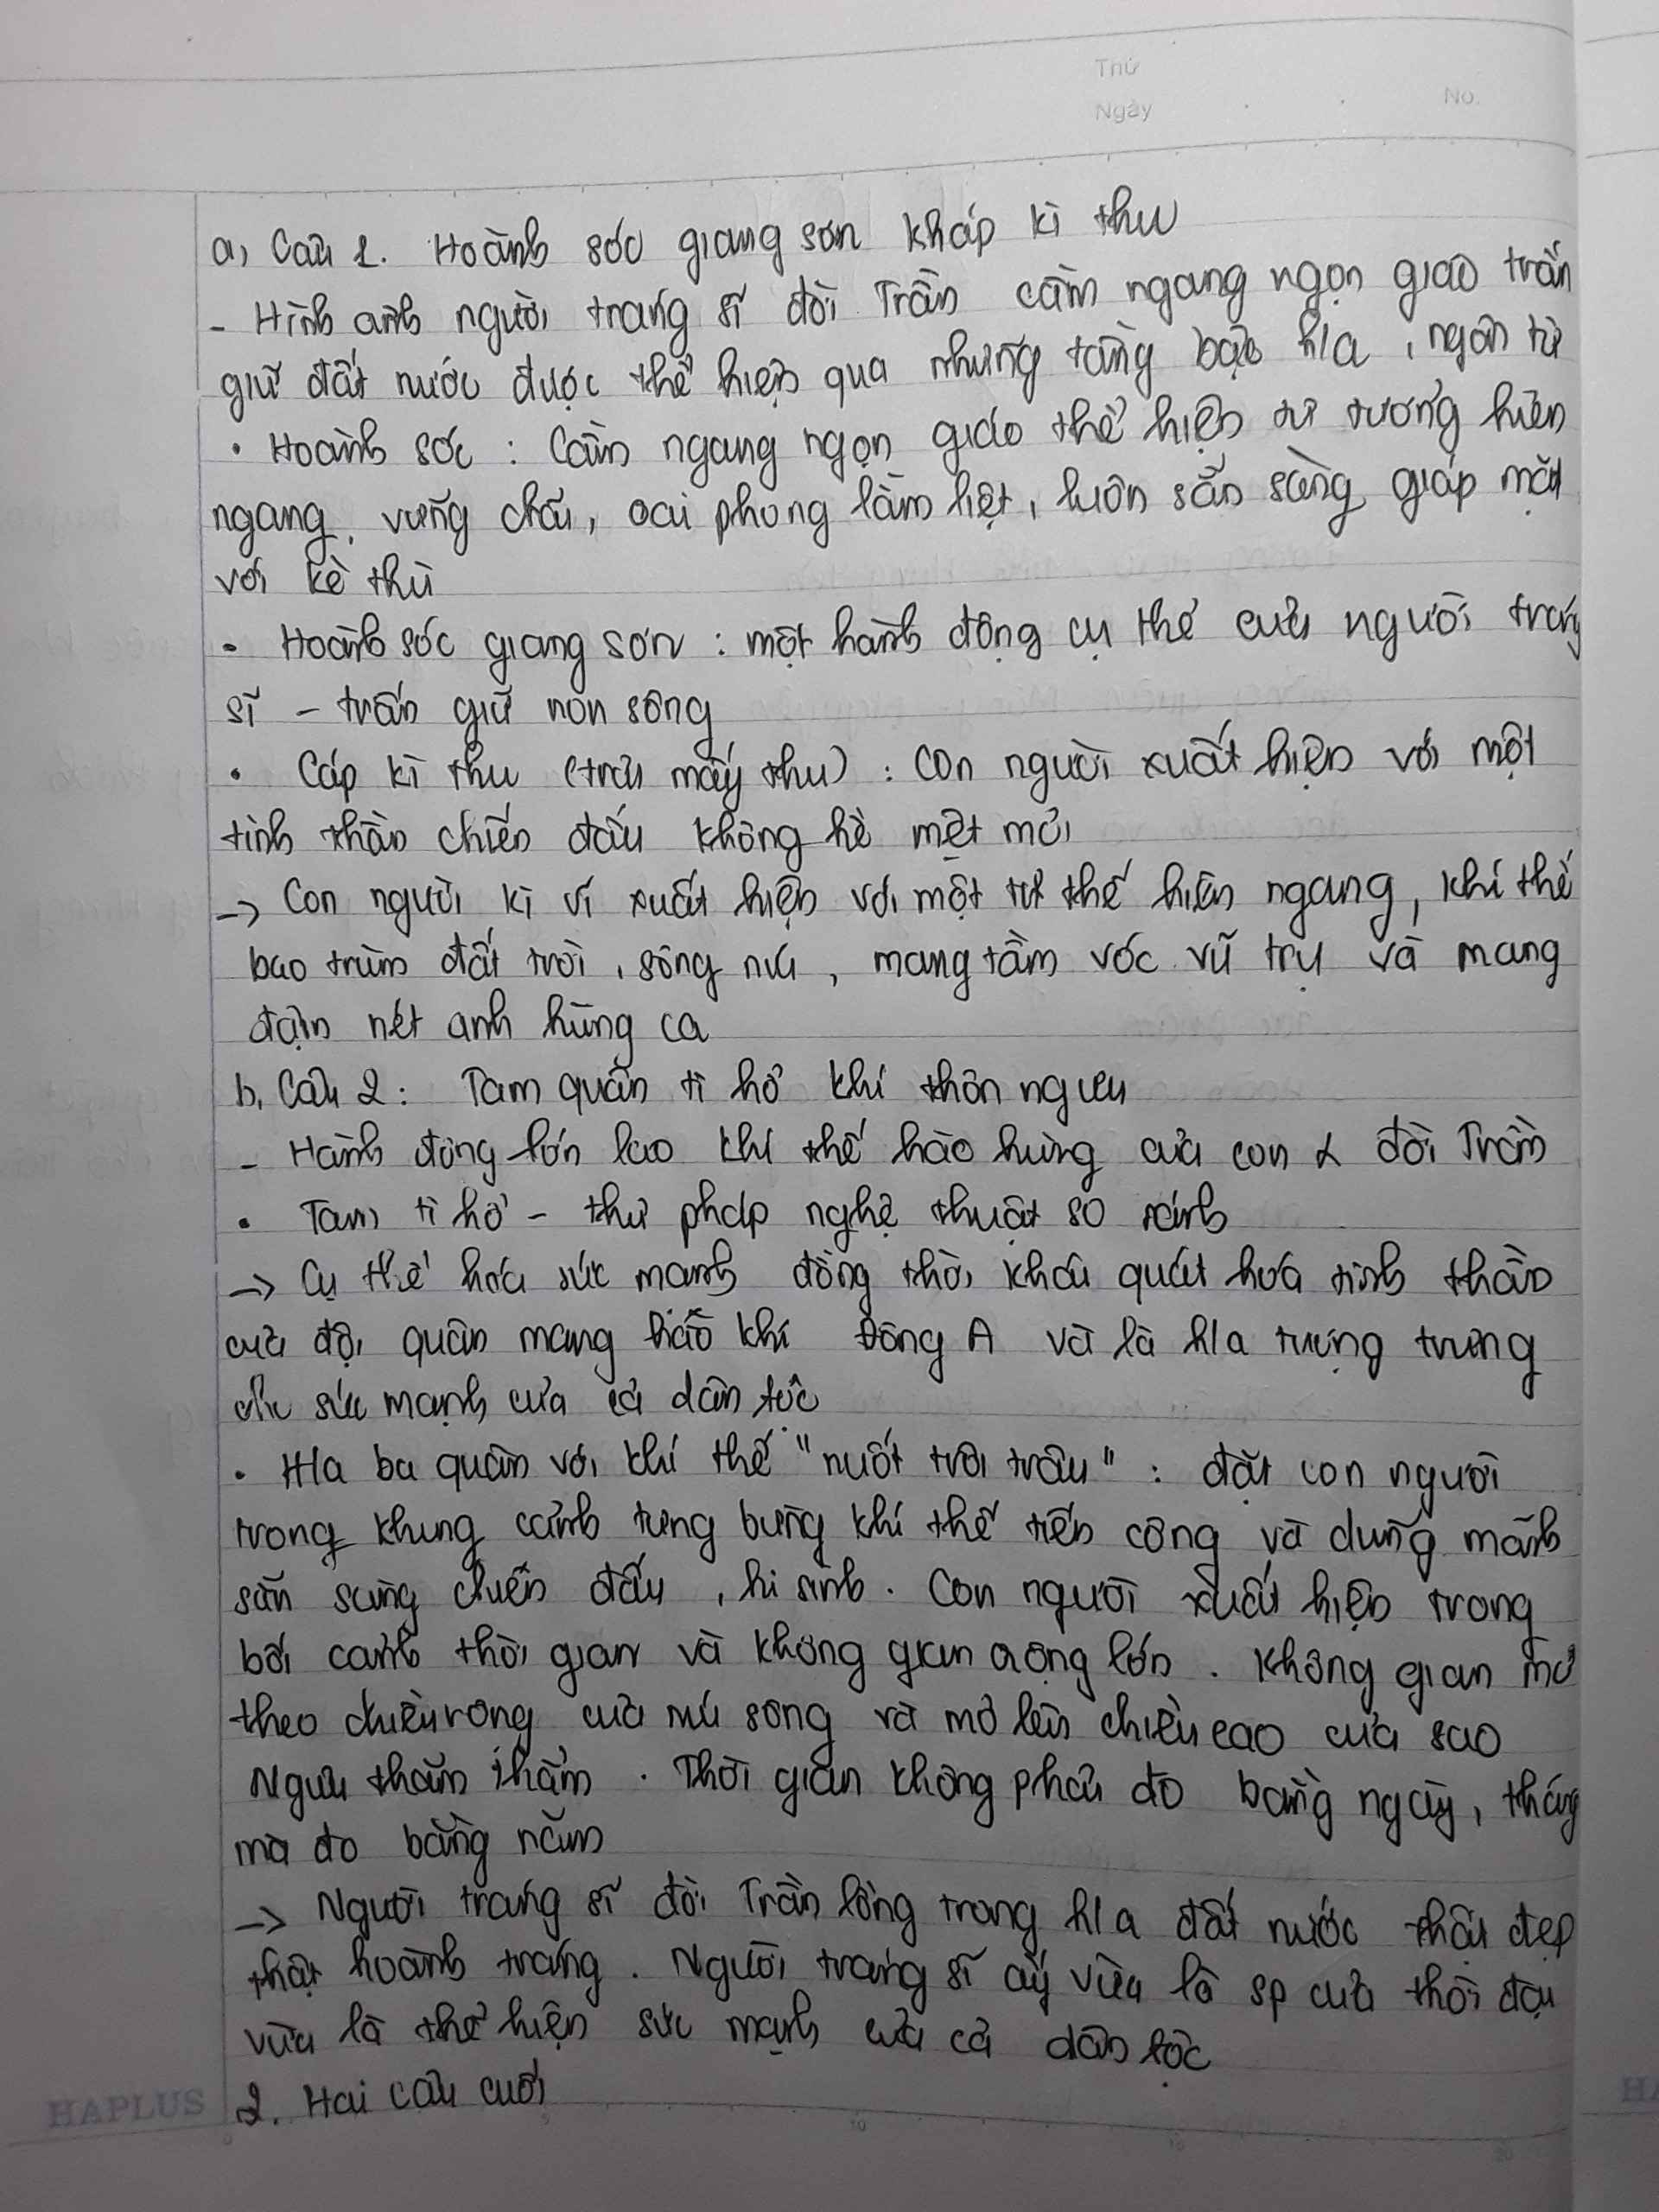 Thứ
Ngày
No.
a, Câu 1. Hoành sóc giang sơn kháp kì thu
- Hình ảnh người tráng sĩ đời Trần cầm ngang ngọn giáo trấn
giữ đất nước được thể hiện qua những tầng bậc h/a, ngôn từ
• Hoành sóc : Cầm ngang ngọn giáo thể hiện tư tướng hiên
ngang, vững chãi, oai phong lẫm liệt, luôn sẵn sàng giáp mặt
với kẻ thù
• Hoành sóc giang sơn : một hành động cụ thể của người tráng
sĩ - trấn giữ non sông
• Cáp kì thu (trải mấy thu) : Con người xuất hiện với một
tinh thần chiến đấu không hề mệt mỏi
-> Con người kì vĩ xuất hiện với một tư thế hiên ngang, khí thế
bao trùm đất trời, sông núi, mang tầm vóc vũ trụ và mang
đậm nét anh hùng ca
b, Câu 2: Tam quân tì hổ khí thôn ngưu
- Hành động lớn lao khí thế hào hùng của con đời Trần
• Tam tì hổ - thủ pháp nghệ thuật so sánh
-> Cụ thể hóa sức mạnh đồng thời khái quát hóa tinh thần
của đội quân mang hào khí Đông A và là h/a tượng trưng
cho sức mạnh của cả dân tộc
• H/a ba quân với khí thế "nuốt trôi trâu" : đặt con người
trong khung cảnh tưng bừng khí thế tiến công và dũng mãnh
sẵn sàng chiến đấu, hi sinh. Con người xuất hiện trong
bối cảnh thời gian và không gian rộng lớn. Không gian mở
theo chiều rộng của núi sông và mở lên chiều cao của sao
Ngưu thăm thẳm. Thời gian không phải đo bằng ngày, tháng
mà đo bằng năm
-> Người tráng sĩ đời Trần lồng trong h/a đất nước thật đẹp
thật hoành tráng. Người tráng sĩ ấy vừa là sp của thời đại
vừa là thể hiện sức mạnh của cả dân tộc
2. Hai câu cuối
HAPLUS